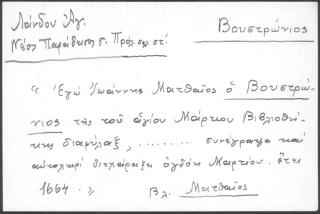 Λάνδου Ἀγ.
Βουστρώνιος
Νέος Παράδεισος σ. Πρόλ. σελ. στ'
« Ἐγώ Ἰωάννης Ματθαῖος ὁ Βουστρώ-
νιος τῆς τοῦ ἁγίου Μάρκου Βιβλιοθή-
κης διαφύλαξ, ......... συνέγραψα καί
αὐτοχειρί διεχάραξα ὀγδόῃ Μαρτίου. ἔτει
1664. »
Βλ. Ματθαῖος